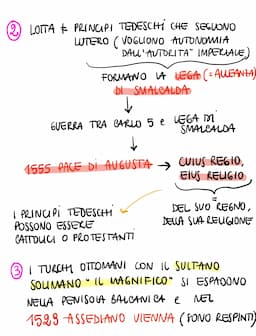 ② LOTTA ≠ PRINCIPI TEDESCHI CHE SEGUONO
LUTERO (VOGLIONO AUTONOMIA
DALL'AUTORITA' IMPERIALE)
FORMANO LA LEGA (=ALLEANZA)
DI SMALCALDA
GUERRA TRA CARLO 5 E LEGA DI
SMALCALDA
1555 PACE DI AUGUSTA → CUIUS REGIO,
EIUS RELIGIO
I PRINCIPI TEDESCHI
POSSONO ESSERE
CATTOLICI O PROTESTANTI
DEL SUO REGNO,
DELLA SUA RELIGIONE
③ I TURCHI OTTOMANI CON IL SULTANO
SOLIMANO "IL MAGNIFICO" SI ESPANDONO
NELLA PENISOLA BALCANICA E NEL
1529 ASSEDIANO VIENNA (SONO RESPINTI)